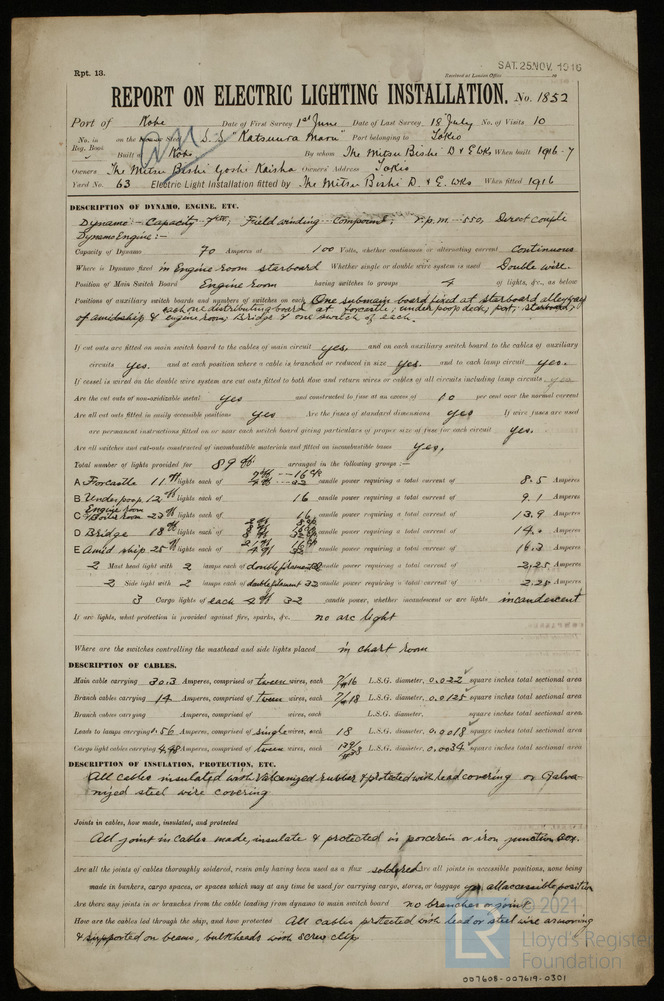 SAT. 25 NOV. 1916
Rpt. 13.
Received at London Office
REPORT ON ELECTRIC LIGHTING INSTALLATION. No. 1852
Port of Kobe Date of First Survey 1st June Date of Last Survey 18 July No. of Visits 10
No. in Reg. Book on the Steel S.S. "Katsuura Maru" Port belonging to Tokio
Built at Kobe By whom The Mitsu Bishi D & E Wks When built 1916-7
Owners The Mitsu Bishi Goshi Kaisha Owners' Address Tokio
Yard No. 63 Electric Light Installation fitted by The Mitsu Bishi D. & E. Wks When fitted 1916
DESCRIPTION OF DYNAMO, ENGINE, ETC.
Dynamo :- Capacity - 7 KW; Field winding - Compound; r.p.m. - 550, Direct couple
Dynamo Engine :-
Capacity of Dynamo 70 Amperes at 100 Volts, whether continuous or alternating current Continuous
Where is Dynamo fixed in Engine room starboard Whether single or double wire system is used Double wire.
Position of Main Switch Board Engine room having switches to groups 4 of lights, &c., as below
Positions of auxiliary switch boards and numbers of switches on each One submain board fixed at starboard alleyway
of amidship & each one distributing board at forcastle, under poop deck, port, starboard,
engine room, Bridge & one switch of each.
If cut outs are fitted on main switch board to the cables of main circuit yes, and on each auxiliary switch board to the cables of auxiliary
circuits yes. and at each position where a cable is branched or reduced in size yes. and to each lamp circuit yes.
If vessel is wired on the double wire system are cut outs fitted to both flow and return wires or cables of all circuits including lamp circuits yes
Are the cut outs of non-oxidizable metal yes and constructed to fuse at an excess of 10 per cent over the normal current
Are all cut outs fitted in easily accessible positions yes Are the fuses of standard dimensions yes If wire fuses are used
are permanent instructions fitted on or near each switch board giving particulars of proper size of fuse for each circuit yes.
Are all switches and cut-outs constructed of incombustible materials and fitted on incombustible bases yes,
Total number of lights provided for 89 arranged in the following groups :—
A Forcastle 11 lights each of 16 32 candle power requiring a total current of 8.5 Amperes
B Underpoop 12 lights each of 16 candle power requiring a total current of 9.1 Amperes
C Engine room & Boiler room 23 lights each of 16 candle power requiring a total current of 13.9 Amperes
D Bridge 18 lights each of 32 candle power requiring a total current of 14. Amperes
E Amid ship 25 lights each of 16 32 candle power requiring a total current of 16.3 Amperes
2 Mast head light with 2 lamps each of double filament 32 candle power requiring a total current of 2.25 Amperes
2 Side light with 2 lamps each of double filament 32 candle power requiring a total current of 2.25 Amperes
3 Cargo lights of each 4 32 candle power, whether incandescent or arc lights incandescent
If arc lights, what protection is provided against fire, sparks, &c. no arc light
Where are the switches controlling the masthead and side lights placed in chart room
DESCRIPTION OF CABLES.
Main cable carrying 30.3 Amperes, comprised of tween wires, each 7/16 L.S.G. diameter, 0.022 square inches total sectional area
Branch cables carrying 14 Amperes, comprised of tween wires, each 7/18 L.S.G. diameter, 0.0125 square inches total sectional area
Branch cables carrying Amperes, comprised of wires, each L.S.G. diameter, square inches total sectional area
Leads to lamps carrying .56 Amperes, comprised of single wires, each 18 L.S.G. diameter, 0.0018 square inches total sectional area
Cargo light cables carrying 4.48 Amperes, comprised of tween wires, each L.S.G. diameter, 0.0034 square inches total sectional area
DESCRIPTION OF INSULATION, PROTECTION, ETC.
All cables insulated with Vulcanized rubber & protected with lead covering or Galva-
nized steel wire covering
Joints in cables, how made, insulated, and protected
All joint in cables made, insulate & protected in porcerein or iron junction box.
Are all the joints of cables thoroughly soldered, resin only having been used as a flux soldered Are all joints in accessible positions, none being
made in bunkers, cargo spaces, or spaces which may at any time be used for carrying cargo, stores, or baggage yes, all accessible position
Are there any joints in or branches from the cable leading from dynamo to main switch board no branches or joint
How are the cables led through the ship, and how protected All cables protected with lead or steel wire armoring
& supported on beams, bulkheads with screw clip
© 2021
LR
Lloyd's Register
Foundation
007608-007619-0301